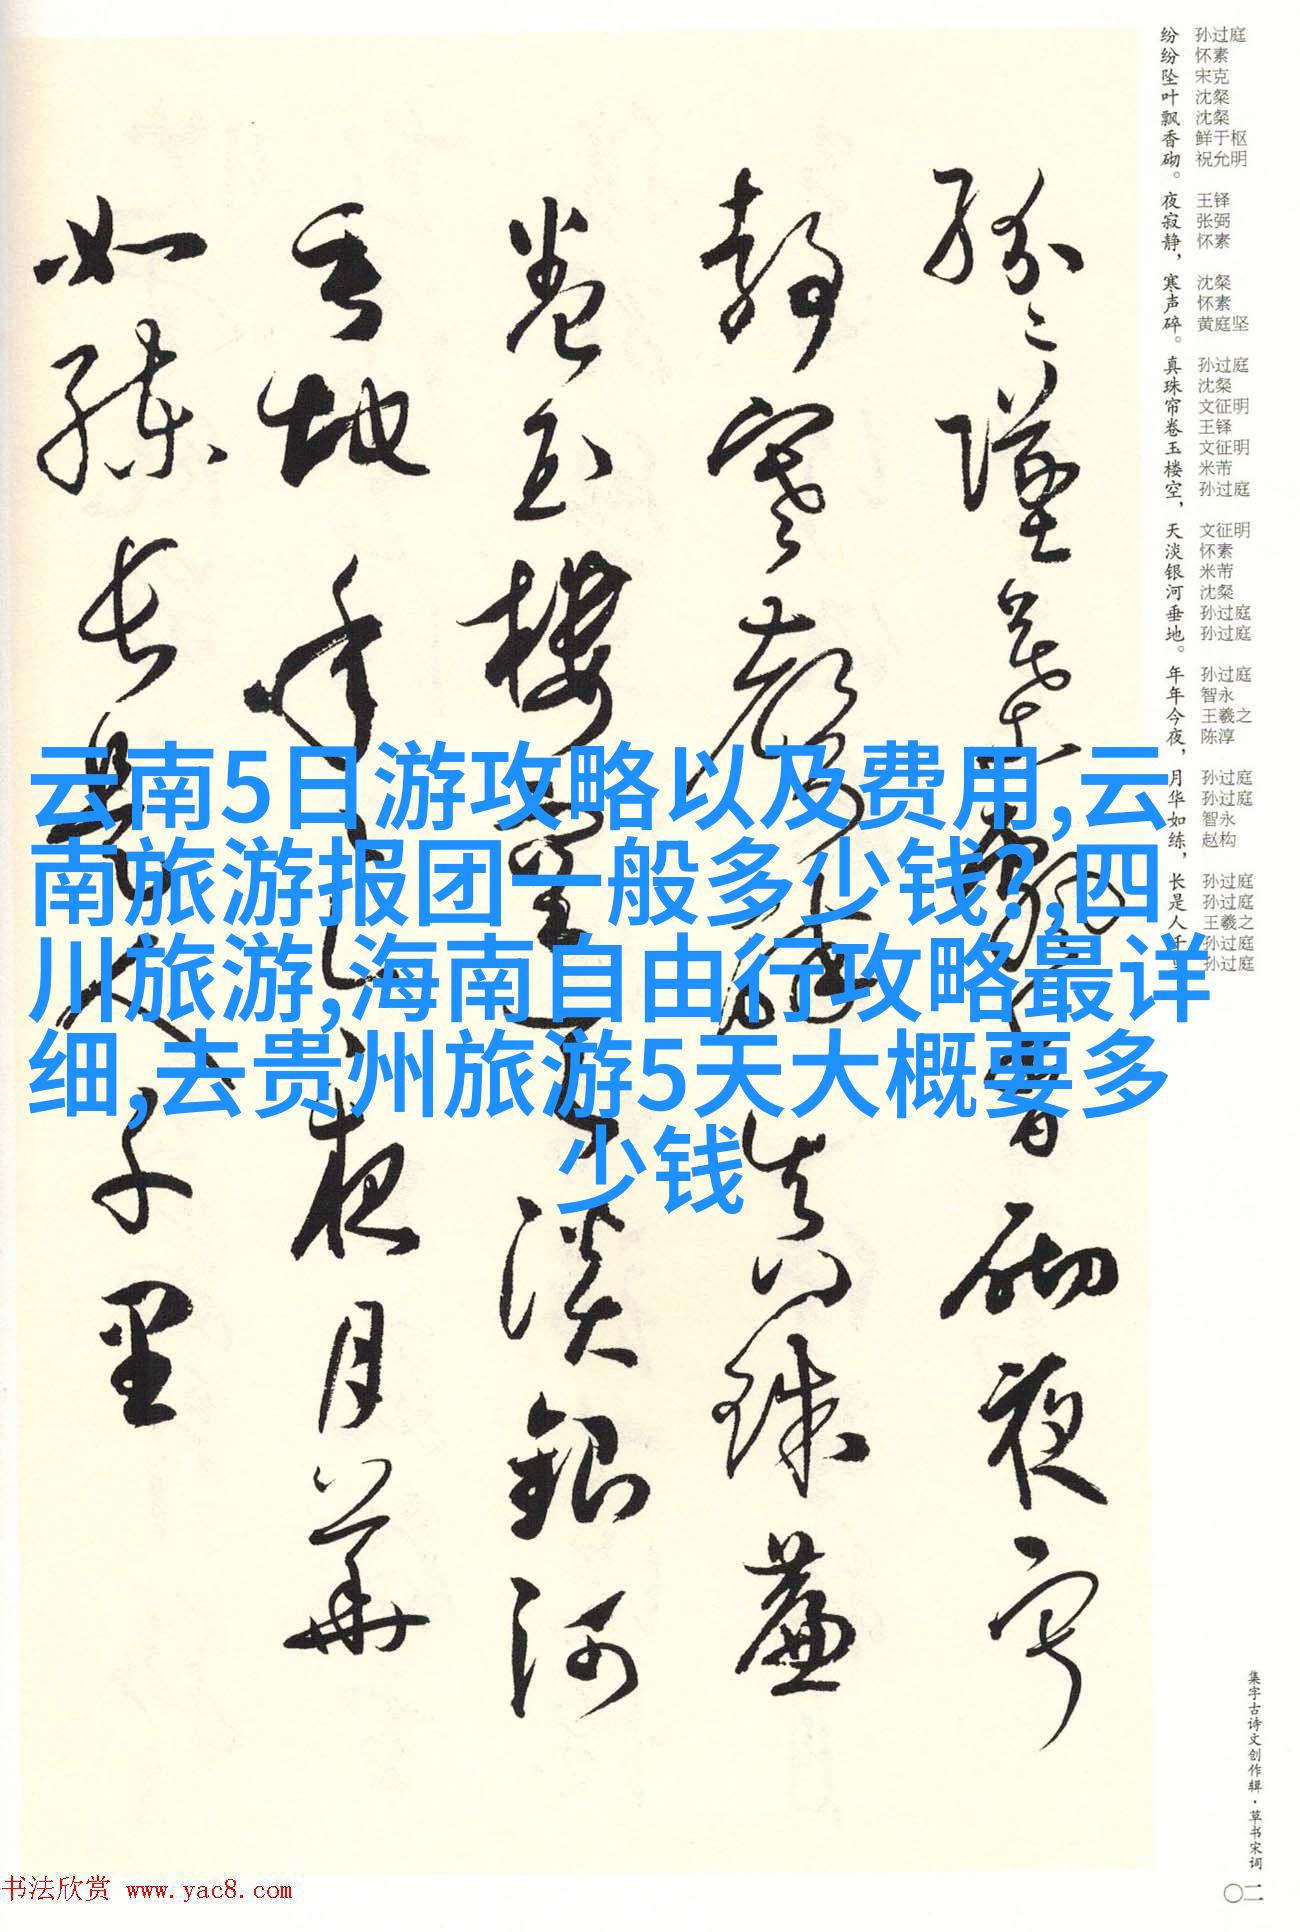 纷纷坠叶飘香砌。
夜寂静，
寒声碎。
真珠帘卷玉楼空，
天淡银河垂地。
年年今夜，
月华如练，
长是人千里
孙过庭
怀素
宋克
沈粲
沈粲
鲜于枢
祝允明
王铎
张弼
怀素
沈粲
怀素
黄庭坚
孙过庭
沈粲
文征明
王铎
文征明
米芾
孙过庭
文征明
怀素
米芾
沈粲
孙过庭
孙过庭
孙过庭
智永
王羲之
陈淳
孙过庭
孙过庭
智永
赵构
孙过庭
孙过庭
王羲之
孙过庭
孙过庭
紛〻墜葉飄香砌夜寂
靜寒聲碎真珠簾
卷玉樓空天淡銀河
垂地年年今夜月華
如練長是人千里
云南5日游攻略以及费用,云
南旅游报团一般多少钱?,四
川旅游,海南自由行攻略最详
细,去贵州旅游5天大概要多
少钱
集字古诗文创作辑·草书宋词
〇二
书法欣赏 www.yac8.com